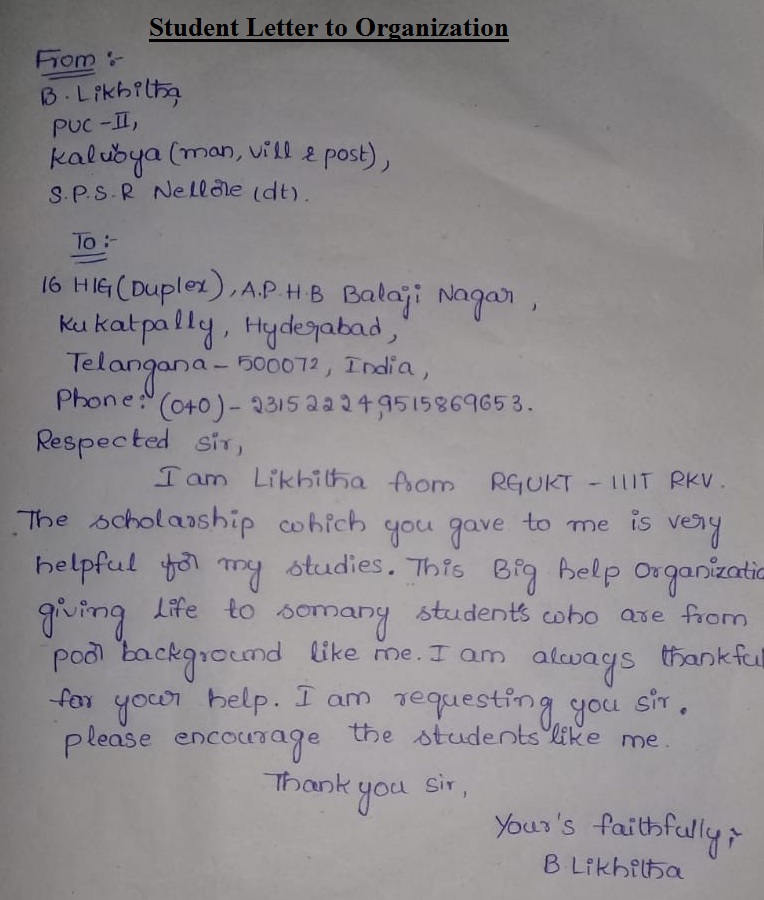 Student Letter to Organization
From :-
B. Likhitha,
PUC -II,
Kaluvoya (man, vill & post),
S.P.S.R Nellore (dt).
To :-
16 HIG (Duplex), A.P.H.B Balaji Nagar,
Kukatpally, Hyderabad,
Telangana - 500072, India,
Phone: (040) - 23152224, 9515869653.
Respected sir,
I am Likhitha from RGUKT - IIIT RKV.
The scholarship which you gave to me is very
helpful for my studies. This Big help Organizatio
giving life to somany student's who are from
poor background like me. I am always thankful
for your help. I am requesting you sir.
please encourage the students like me.
Thank you sir,
Your's faithfully,
B. Likhitha